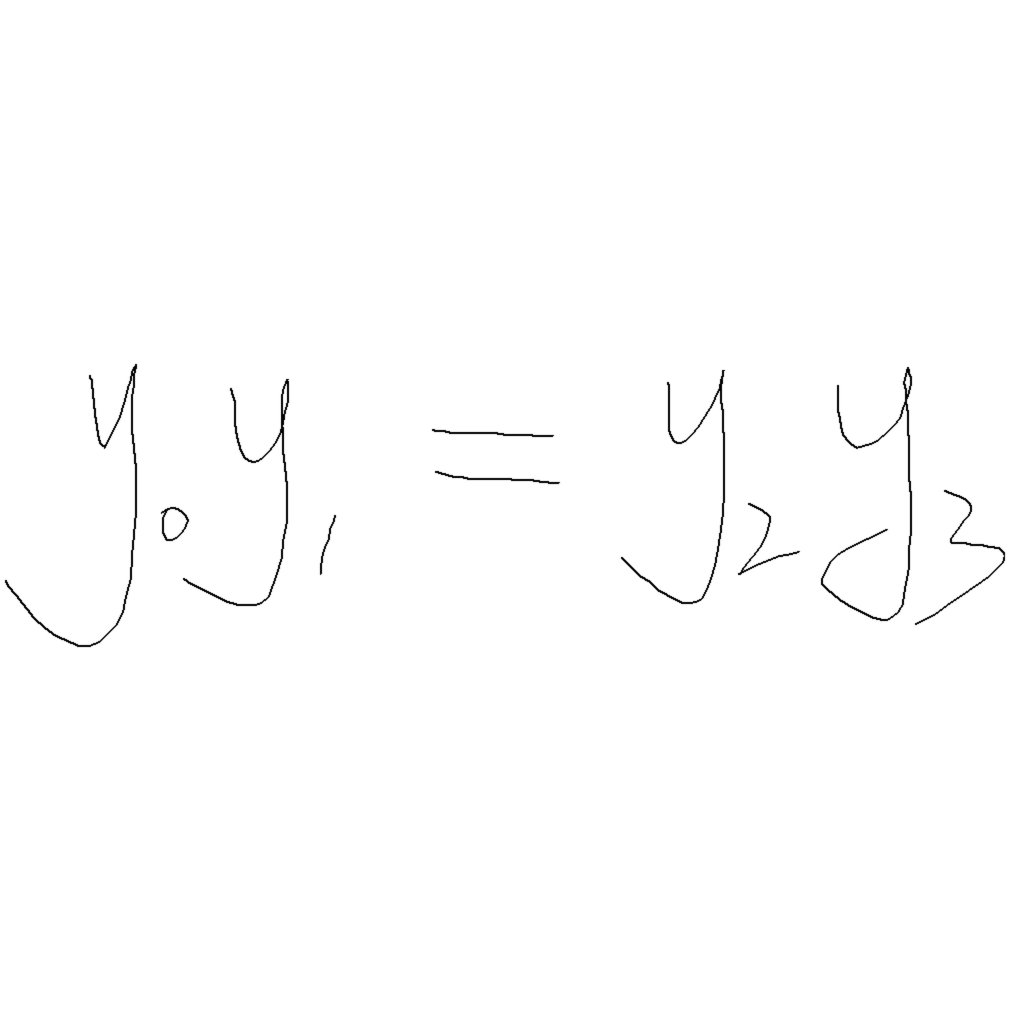 y₀y₁ = y₂y₃